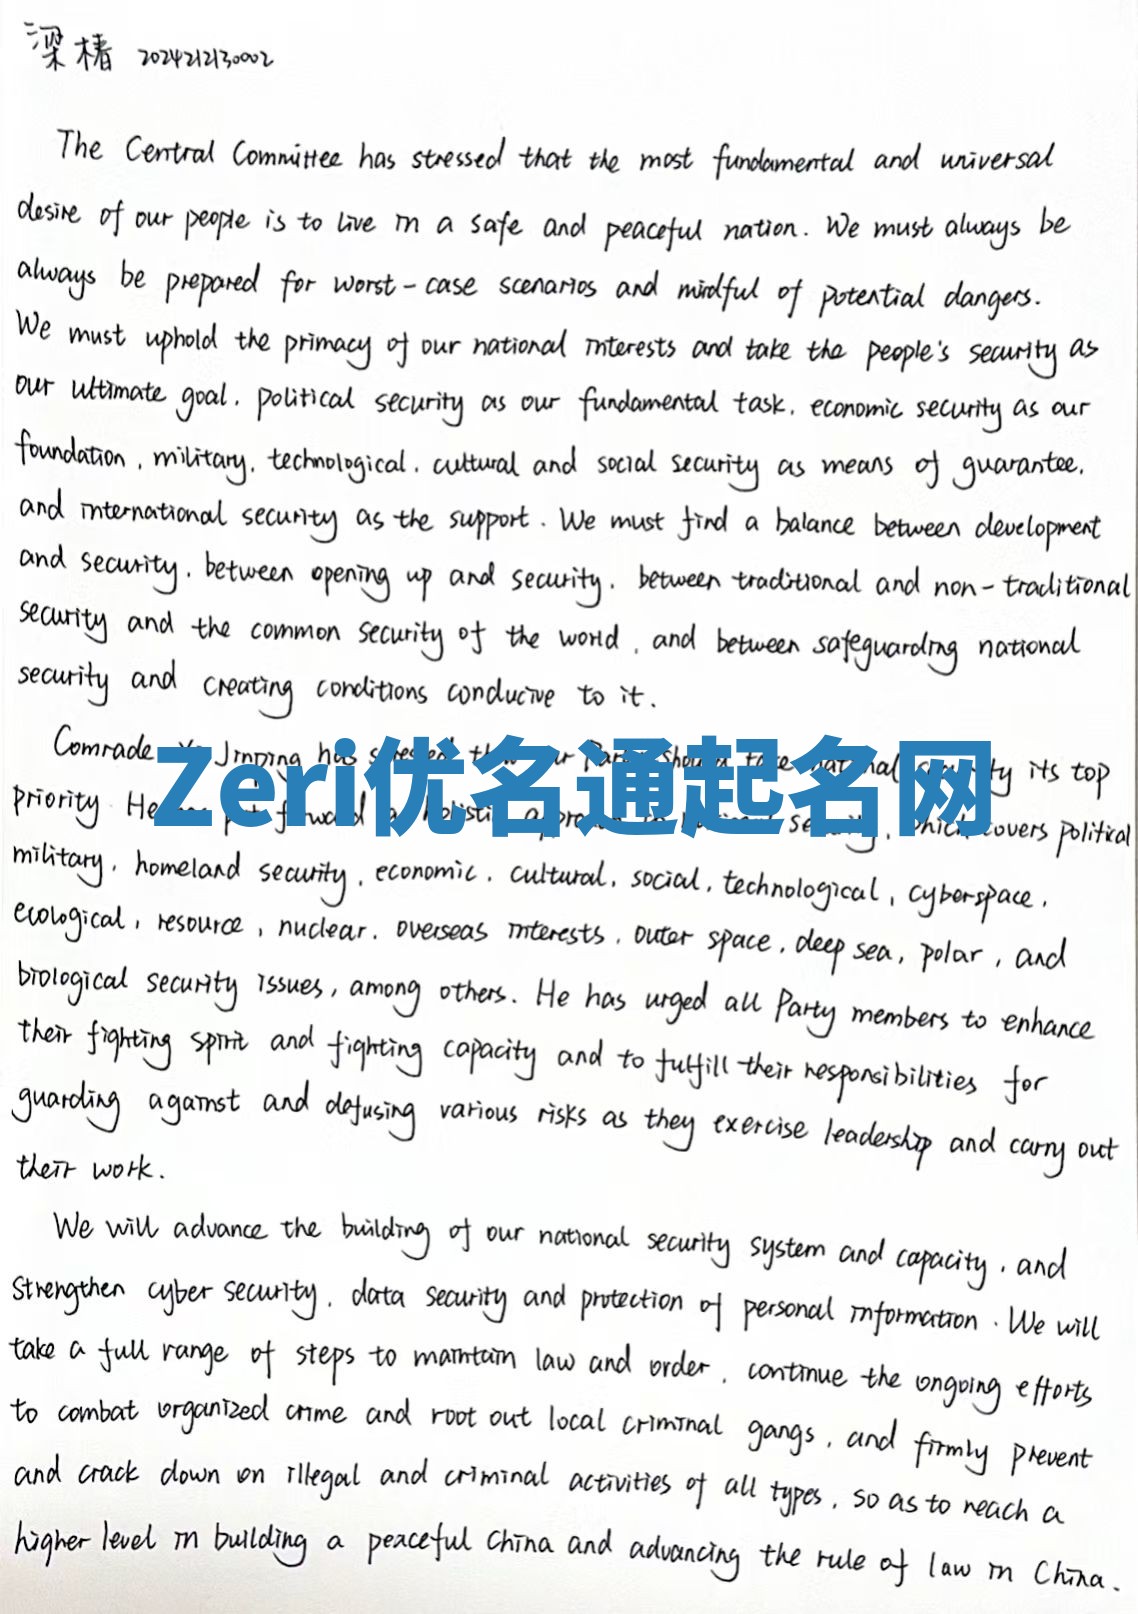 梁椿 2024212130002
The Central Committee has stressed that the most fundamental and universal
desire of our people is to live in a safe and peaceful nation. We must always be
always be prepared for worst-case scenarios and mindful of potential dangers.
We must uphold the primacy of our national interests and take the people's security as
our ultimate goal, political security as our fundamental task, economic security as our
foundation, military, technological, cultural and social security as means of guarantee,
and international security as the support. We must find a balance between development
and security, between opening up and security, between traditional and non-traditional
security and the common security of the world, and between safeguarding national
security and creating conditions conducive to it.
Comrade Jinping has its top
Zeri优名通起名网
priority. He forward covers political
military, homeland security, economic, cultural, social, technological, cyberspace,
ecological, resource, nuclear, overseas interests, outer space, deep sea, polar, and
biological security issues, among others. He has urged all Party members to enhance
their fighting spirit and fighting capacity and to fulfill their responsibilities for
guarding against and defusing various risks as they exercise leadership and carry out
their work.
We will advance the building of our national security system and capacity, and
strengthen cyber security, data security and protection of personal information. We will
take a full range of steps to maintain law and order, continue the ongoing efforts
to combat organized crime and root out local criminal gangs, and firmly prevent
and crack down on illegal and criminal activities of all types, so as to reach a
higher level in building a peaceful China and advancing the rule of law in China.